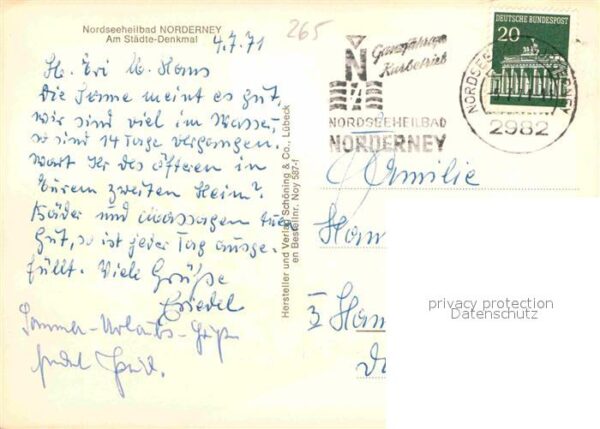 Nordseeheilbad NORDERNEY
Am Städte-Denkmal
4.7.71
265
Lb. Evi u. Hans
Die Sonne meint es gut,
wir sind viel im Wasser,
so sind 14 Tage vergangen.
Wart Ihr des öfteren in
Eurem zweiten Heim?
Bäder und Massagen tuen
gut, so ist jeder Tag ausge-
füllt. Viele Grüße
Friedel
Sommer-Urlaubs-Grüße
sendet
Hersteller und Verlag Schöning & Co., Lübeck
en Bestellnr. Noy 587-f
Ganzjähriger
Kurbetrieb
N
NORDSEEHEILBAD
NORDERNEY
DEUTSCHE BUNDESPOST
20
2982
Familie
Han
3 Han
privacy protection
Datenschutz